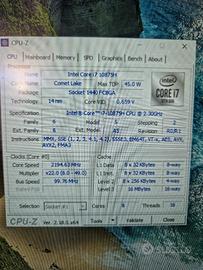 CPU-Z
CPU Mainboard Memory SPD Graphics Bench About
Processor
Name Intel Core i7 10875H
Code Name Comet Lake Max TDP 45.0 W
Package Socket 1440 FCBGA
Technology 14 nm Core VID 0.659 V
intel
CORE i7
Specification Intel® Core™ i7-10875H CPU @ 2.30GHz
Family 6 Model 5 Stepping 2
Ext. Family 6 Revision R0/R1
Instructions MMX, SSE (1, 2, 3, 4.1, 4.2), SSSE3, EM64T, VT-x, AES, AVX,
AVX2, FMA3
Clocks (Core #0) Cache
Core Speed 2194.63 MHz L1 Data 8 x 32 KBytes 8-way
Multiplier x22.0 (8.0 - 49.0) L1 Inst. 8 x 32 KBytes 8-way
Bus Speed 99.76 MHz Level 2 8 x 256 KBytes 4-way
Level 3 16 MBytes 16-way
Selection Socket #1 Cores 8 Threads 16
CPU-Z Tools Validate Close